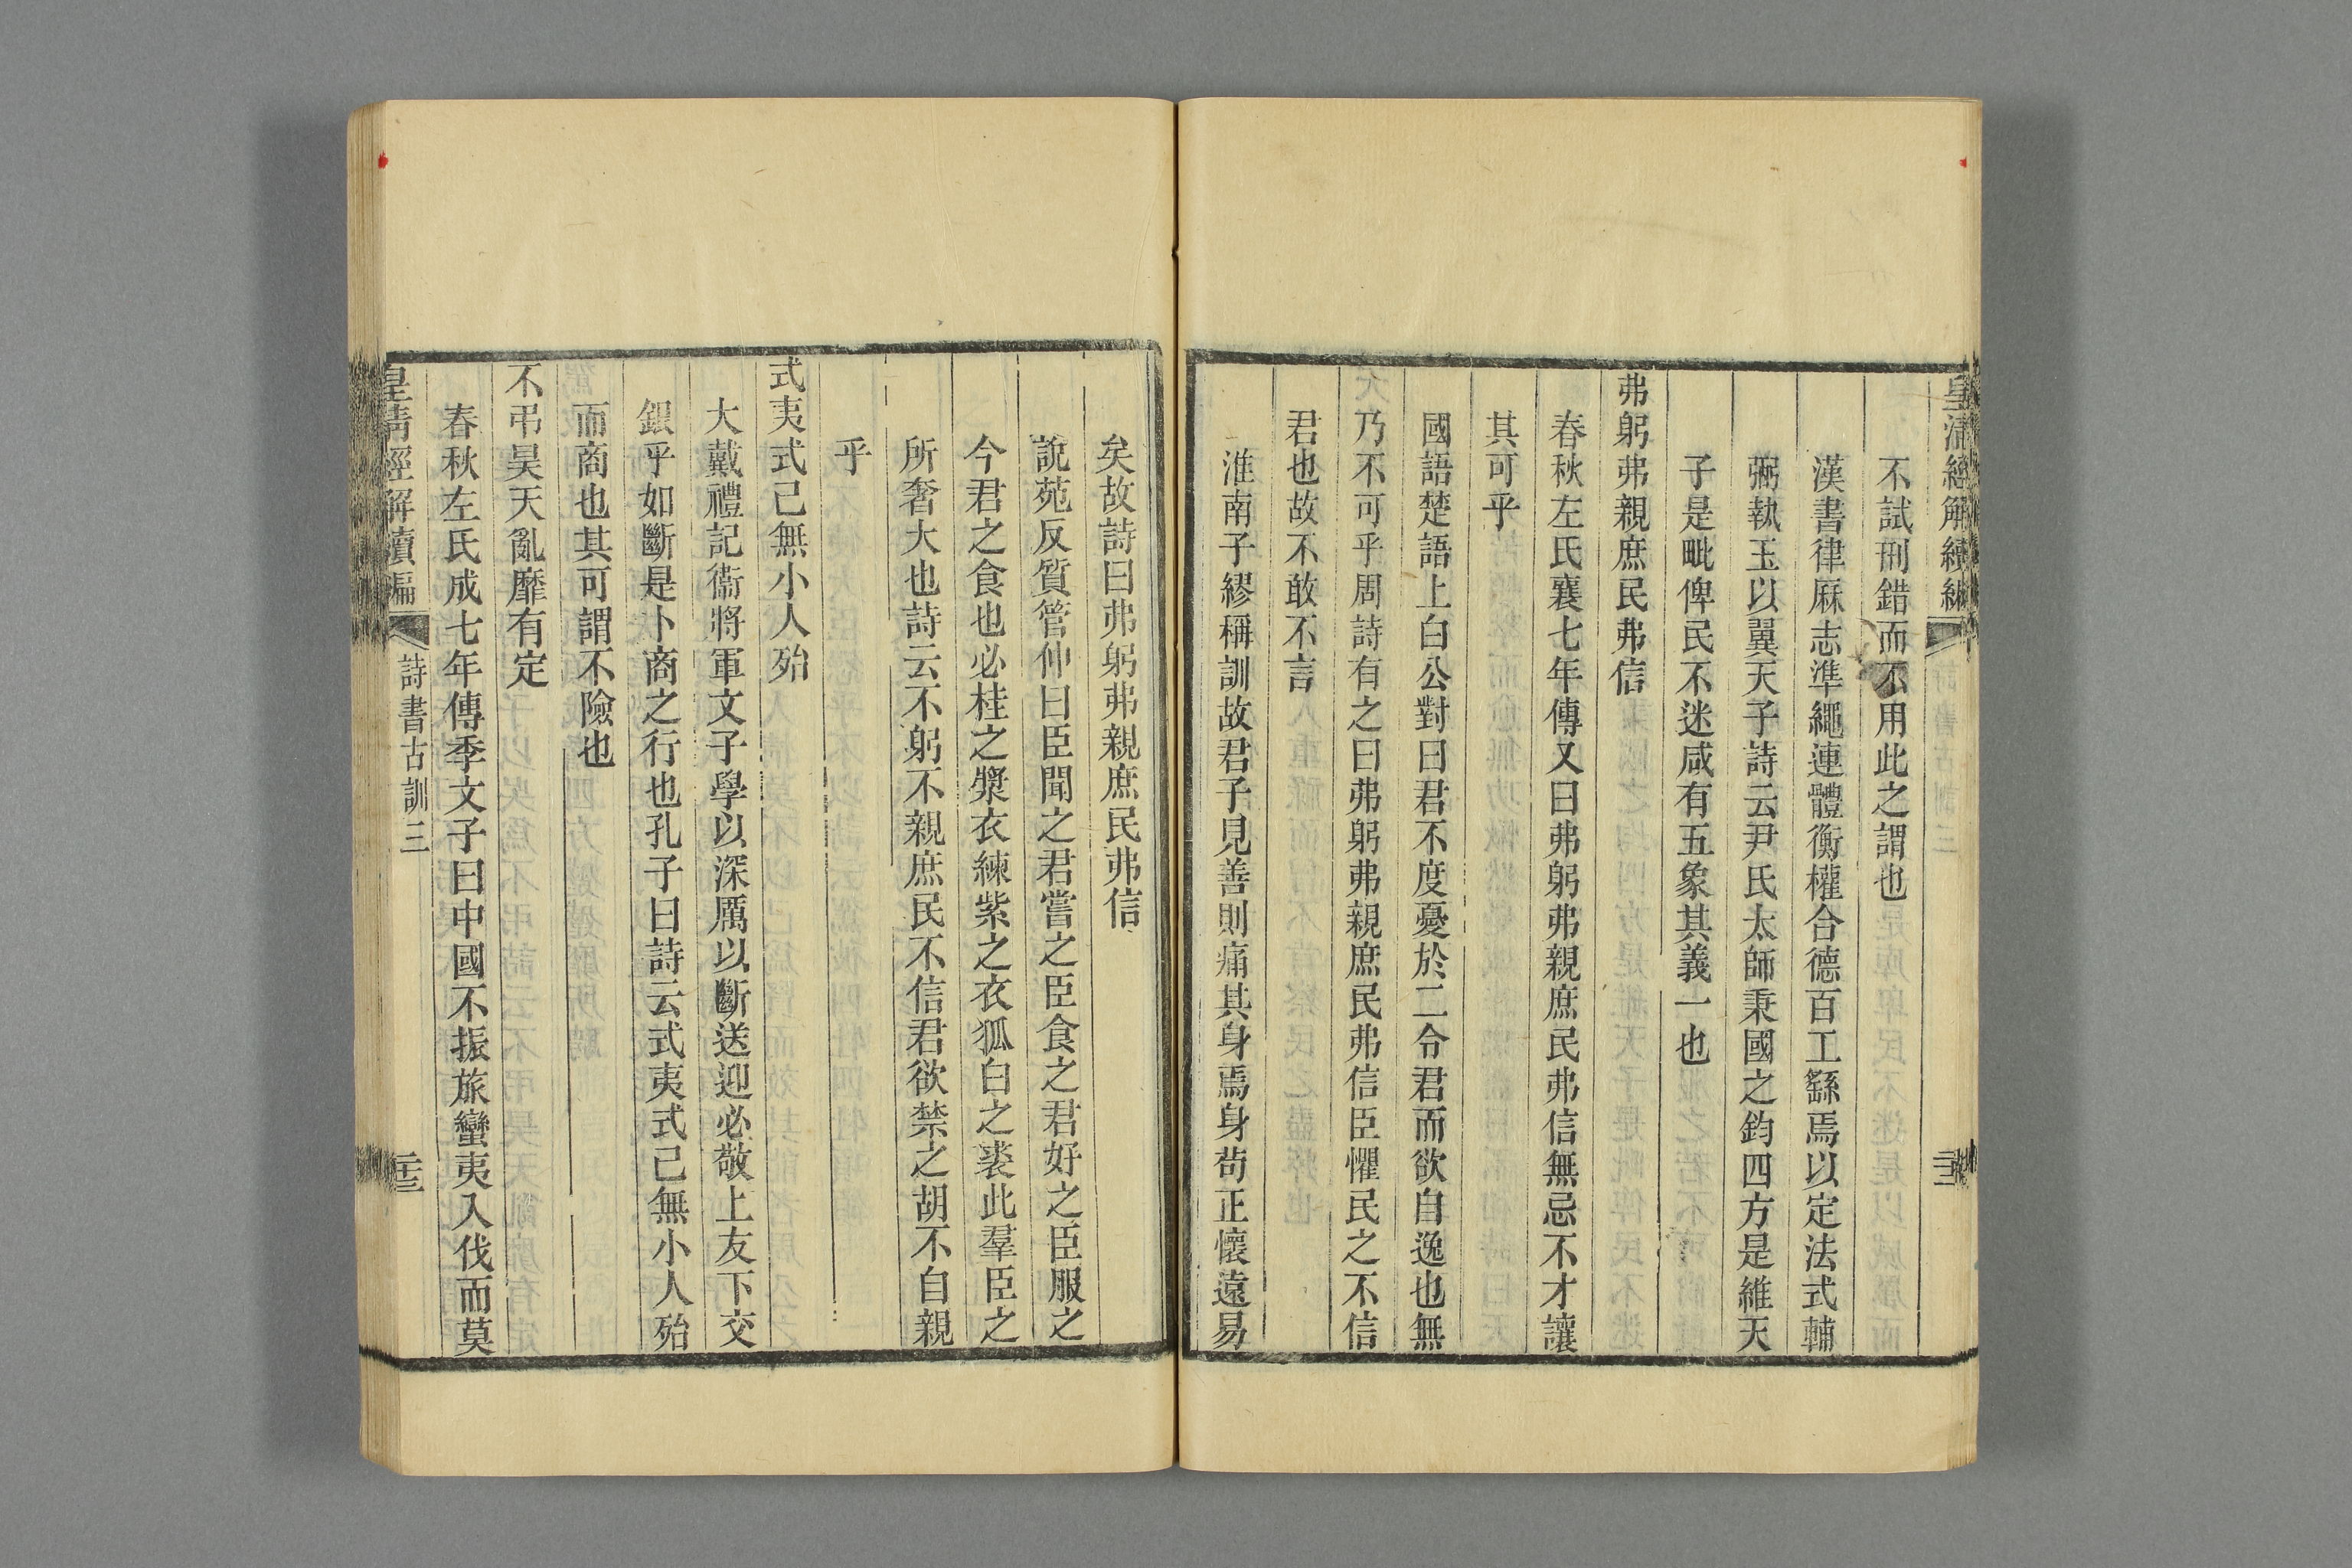 皇清經解續編
不試刑錯而不用此之謂也
漢書律厤志準繩連體衡權合德百工繇焉以定法式輔
弼執玉以翼天子詩云尹氏太師秉國之鈞四方是維天
子是毗俾民不迷咸有五象其義一也
弗躬弗親庶民弗信
春秋左氏襄七年傳又曰弗躬弗親庶民弗信無忌不才讓
其可乎
國語楚語上白公對曰君不度憂於二令君而欲自逸也無
乃不可乎周詩有之曰弗躬弗親庶民弗信臣懼民之不信
君也故不敢不言
淮南子繆稱訓故君子見善則痛其身焉身苟正懷遠易
矣故詩曰弗躬弗親庶民弗信
說苑反質管仲曰臣聞之君嘗之臣食之君好之臣服之
今君之食也必桂之漿衣練紫之衣狐白之裘此羣臣之
所奢大也詩云不躬不親庶民不信君欲禁之胡不自親
乎
式夷式已無小人殆
大戴禮記衞將軍文子學以深厲以斷送迎必敬上友下交
銀乎如斷是卜商之行也孔子曰詩云式夷式已無小人殆
而商也其可謂不險也
不弔昊天亂靡有定
春秋左氏成七年傳季文子曰中國不振旅蠻夷入伐而莫
皇清經解續編 詩書古訓三 二十三